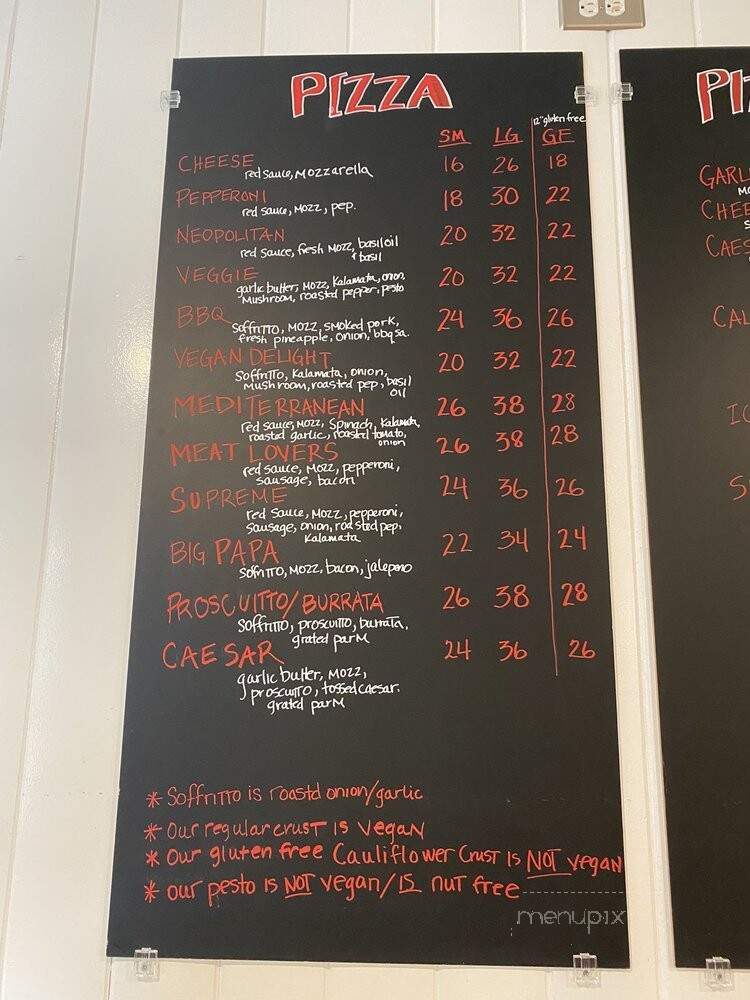 PIZZA
12" gluten free
SM LG GF
CHEESE 16 26 18
red sauce, mozzarella
PEPPERONI 18 30 22
red sauce, mozz, pep.
NEOPOLITAN 20 32 22
red sauce, fresh mozz, basil oil
+ basil
VEGGIE 20 32 22
garlic butter, mozz, Kalamata, onion,
mushroom, roasted pepper, pesto
BBQ 24 36 26
Soffritto, mozz, smoked pork,
fresh pineapple, onion, bbq sa.
VEGAN DELIGHT 20 32 22
Soffritto, Kalamata, onion,
mushroom, roasted pep, basil
oil
MEDITERRANEAN 26 38 28
red sauce, mozz, Spinach, Kalamata,
roasted garlic, roasted tomato,
onion
MEAT LOVERS 26 38 28
red sauce, mozz, pepperoni,
sausage, bacon
SUPREME 24 36 26
red sauce, mozz, pepperoni,
sausage, onion, roasted pep,
Kalamata
BIG PAPA 22 34 24
Soffritto, mozz, bacon, jalepeno
PROSCUITTO/BURRATA 26 38 28
Soffritto, proscuitto, burrata,
grated parm
CAESAR 24 36 26
garlic butter, mozz,
proscuitto, tossed caesar.
grated parm
* Soffritto is roastd onion/garlic
* Our regular crust is vegan
* Our gluten free Cauliflower Crust is NOT vegan
* our pesto is NOT vegan/IS nut free
menupix
PI
GARL
CHEE
CAES
CAL